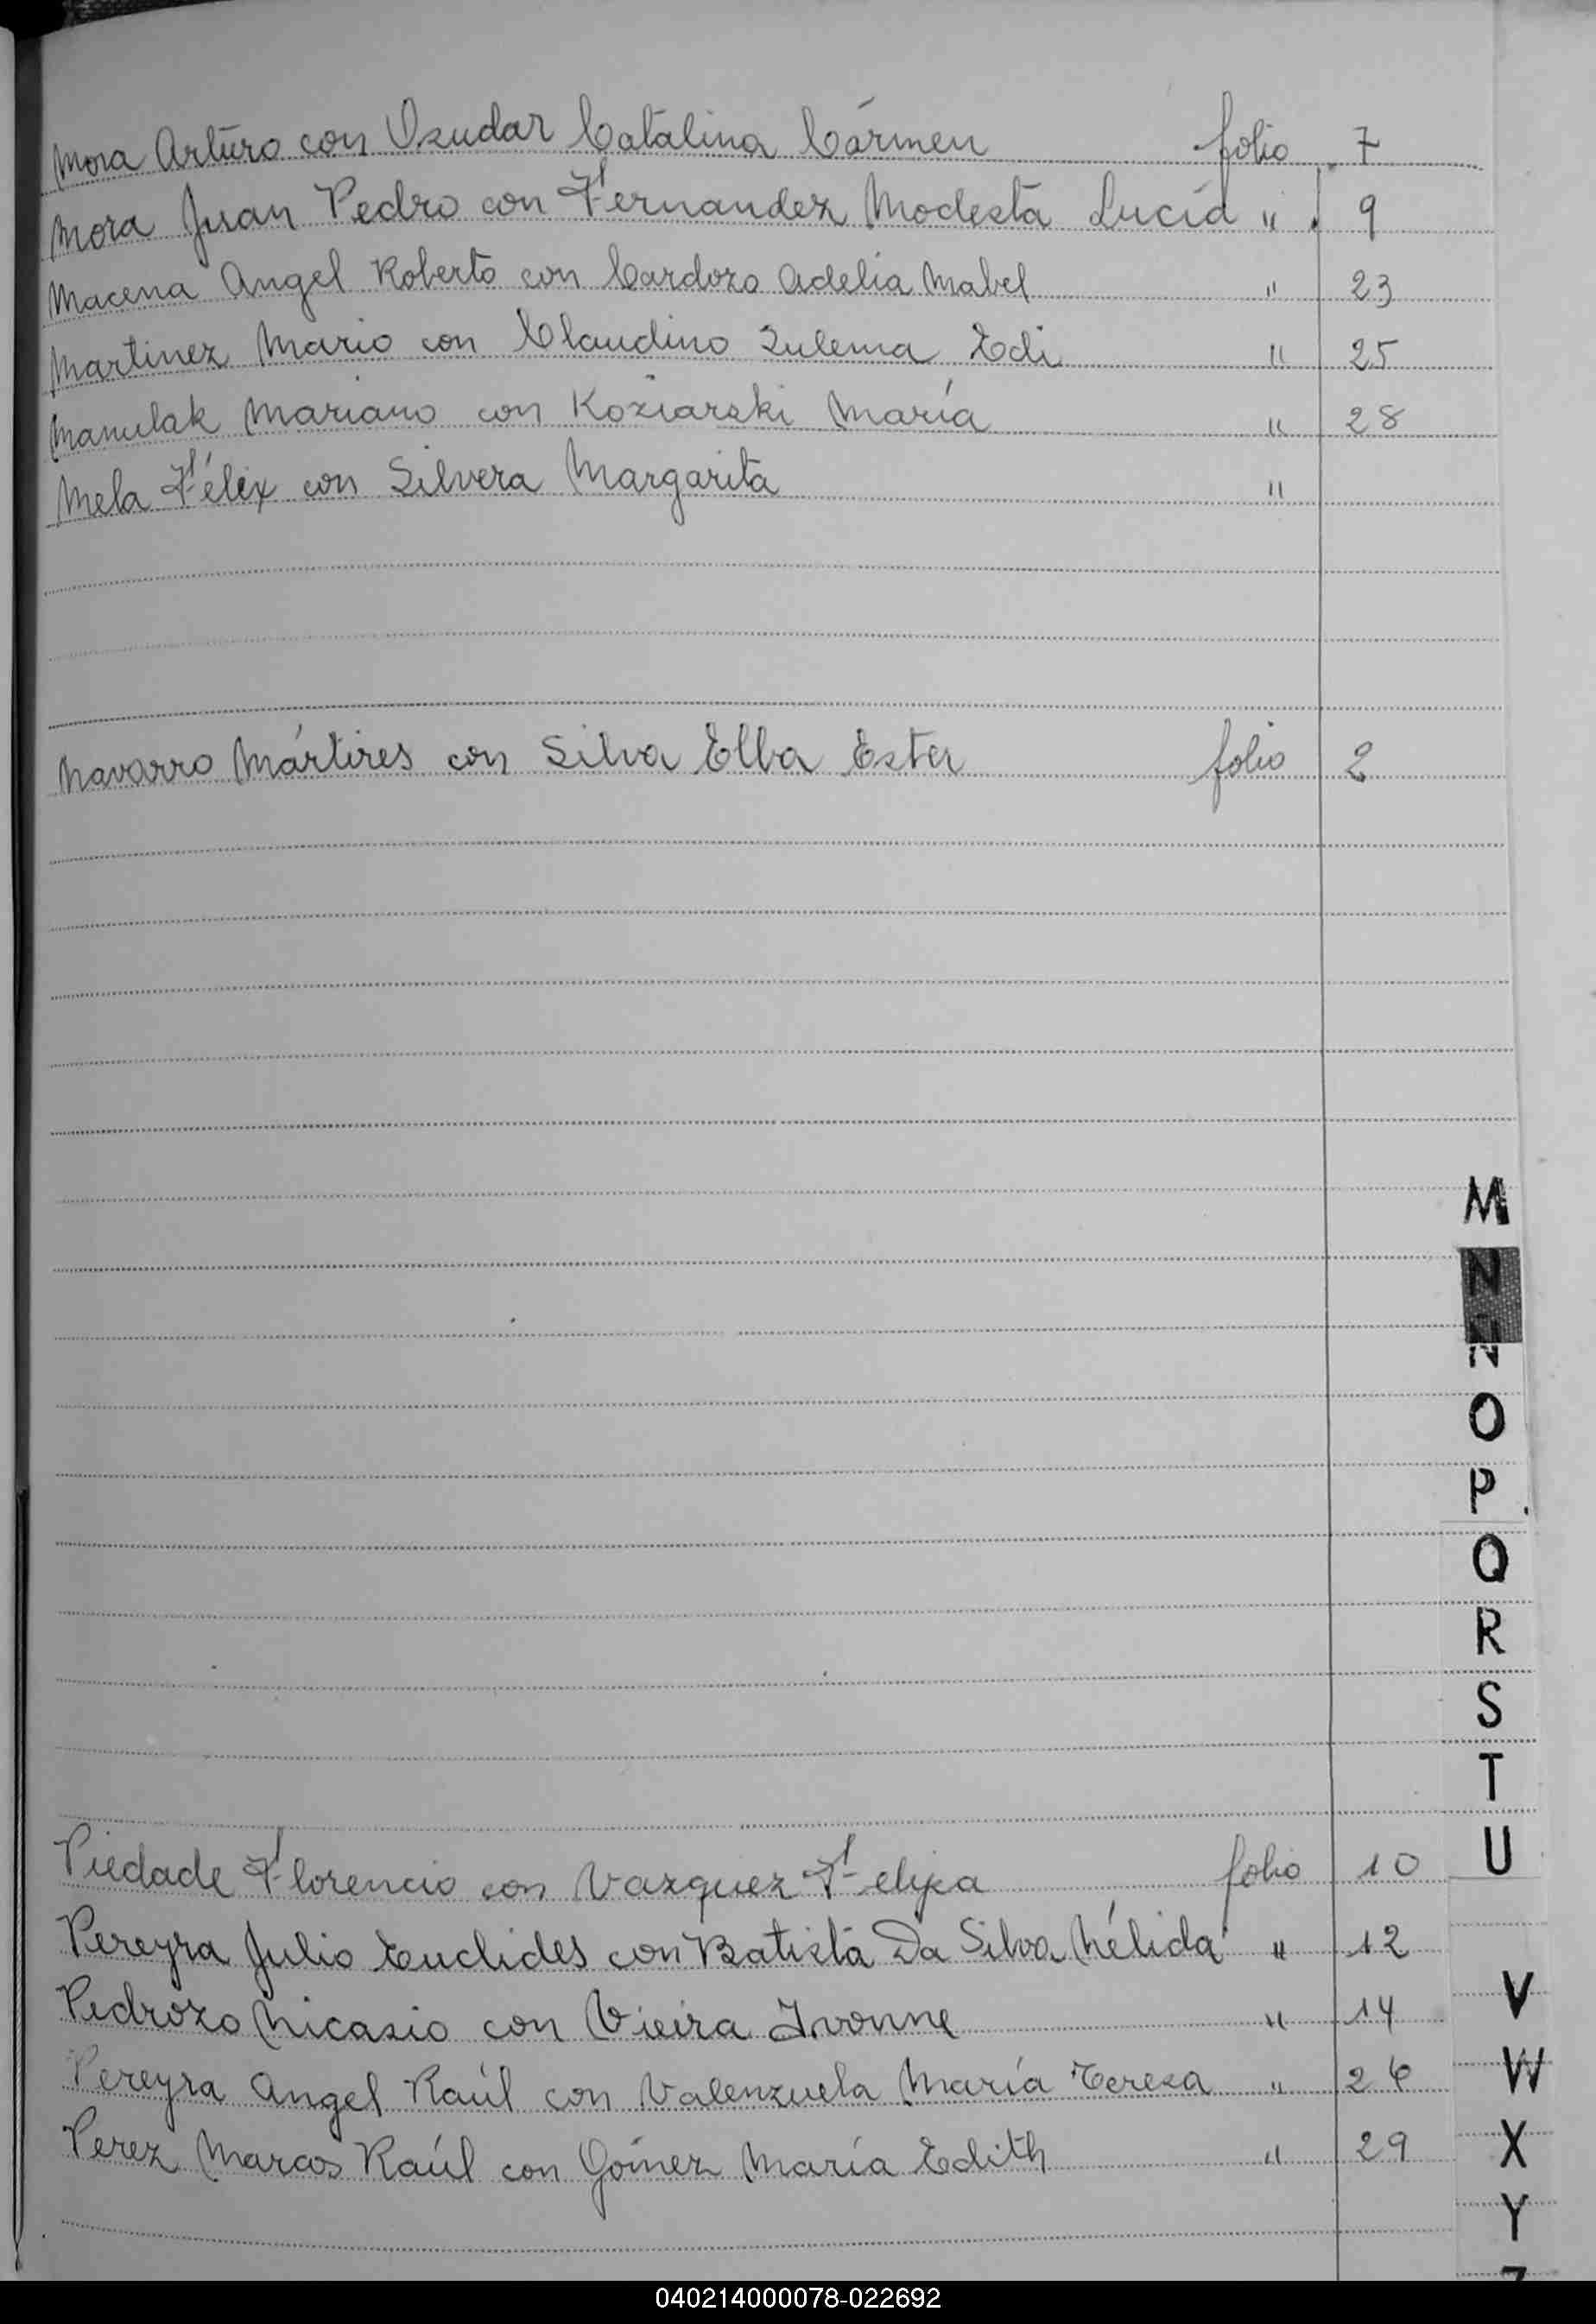 Mora Arturo con Osudar Catalina Cármen folio 7
Mora Juan Pedro con Fernandez Modesta Lucía " 9
Macena Angel Roberto con Cardozo Adelia Mabel " 23
Martinez Mario con Claudino Zulema Edi " 25
Manulak Mariano con Koziarski María " 28
Mela Félix con Silvera Margarita "
Navarro Mártires con Silva Elba Ester folio 2
M
N
Ñ
O
P
Q
R
S
T
U
Piedade Florencio con Vazquez Felipa folio 10
Pereyra Julio Euclides con Batista Da Silva Nélida " 12
Pedrozo Nicasio con Vieira Ivonne " 14
Pereyra Angel Raúl con Valenzuela María Teresa " 26
Perez Marcos Raúl con Gómez María Edith " 29
V
W
X
Y
Z
040214000078-022692